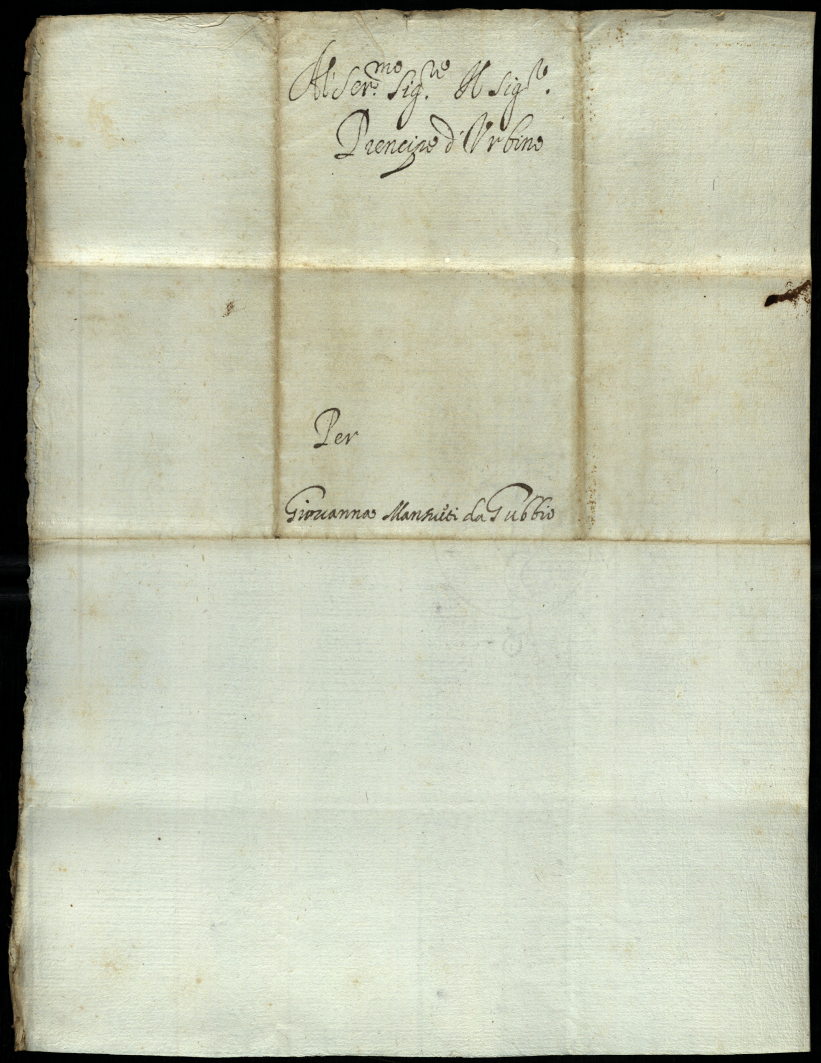 Al Ser.mo Sig.re Il Sig.re
Prencipe d'Urbino
Per
Giovanna Mansueti da Gubbio